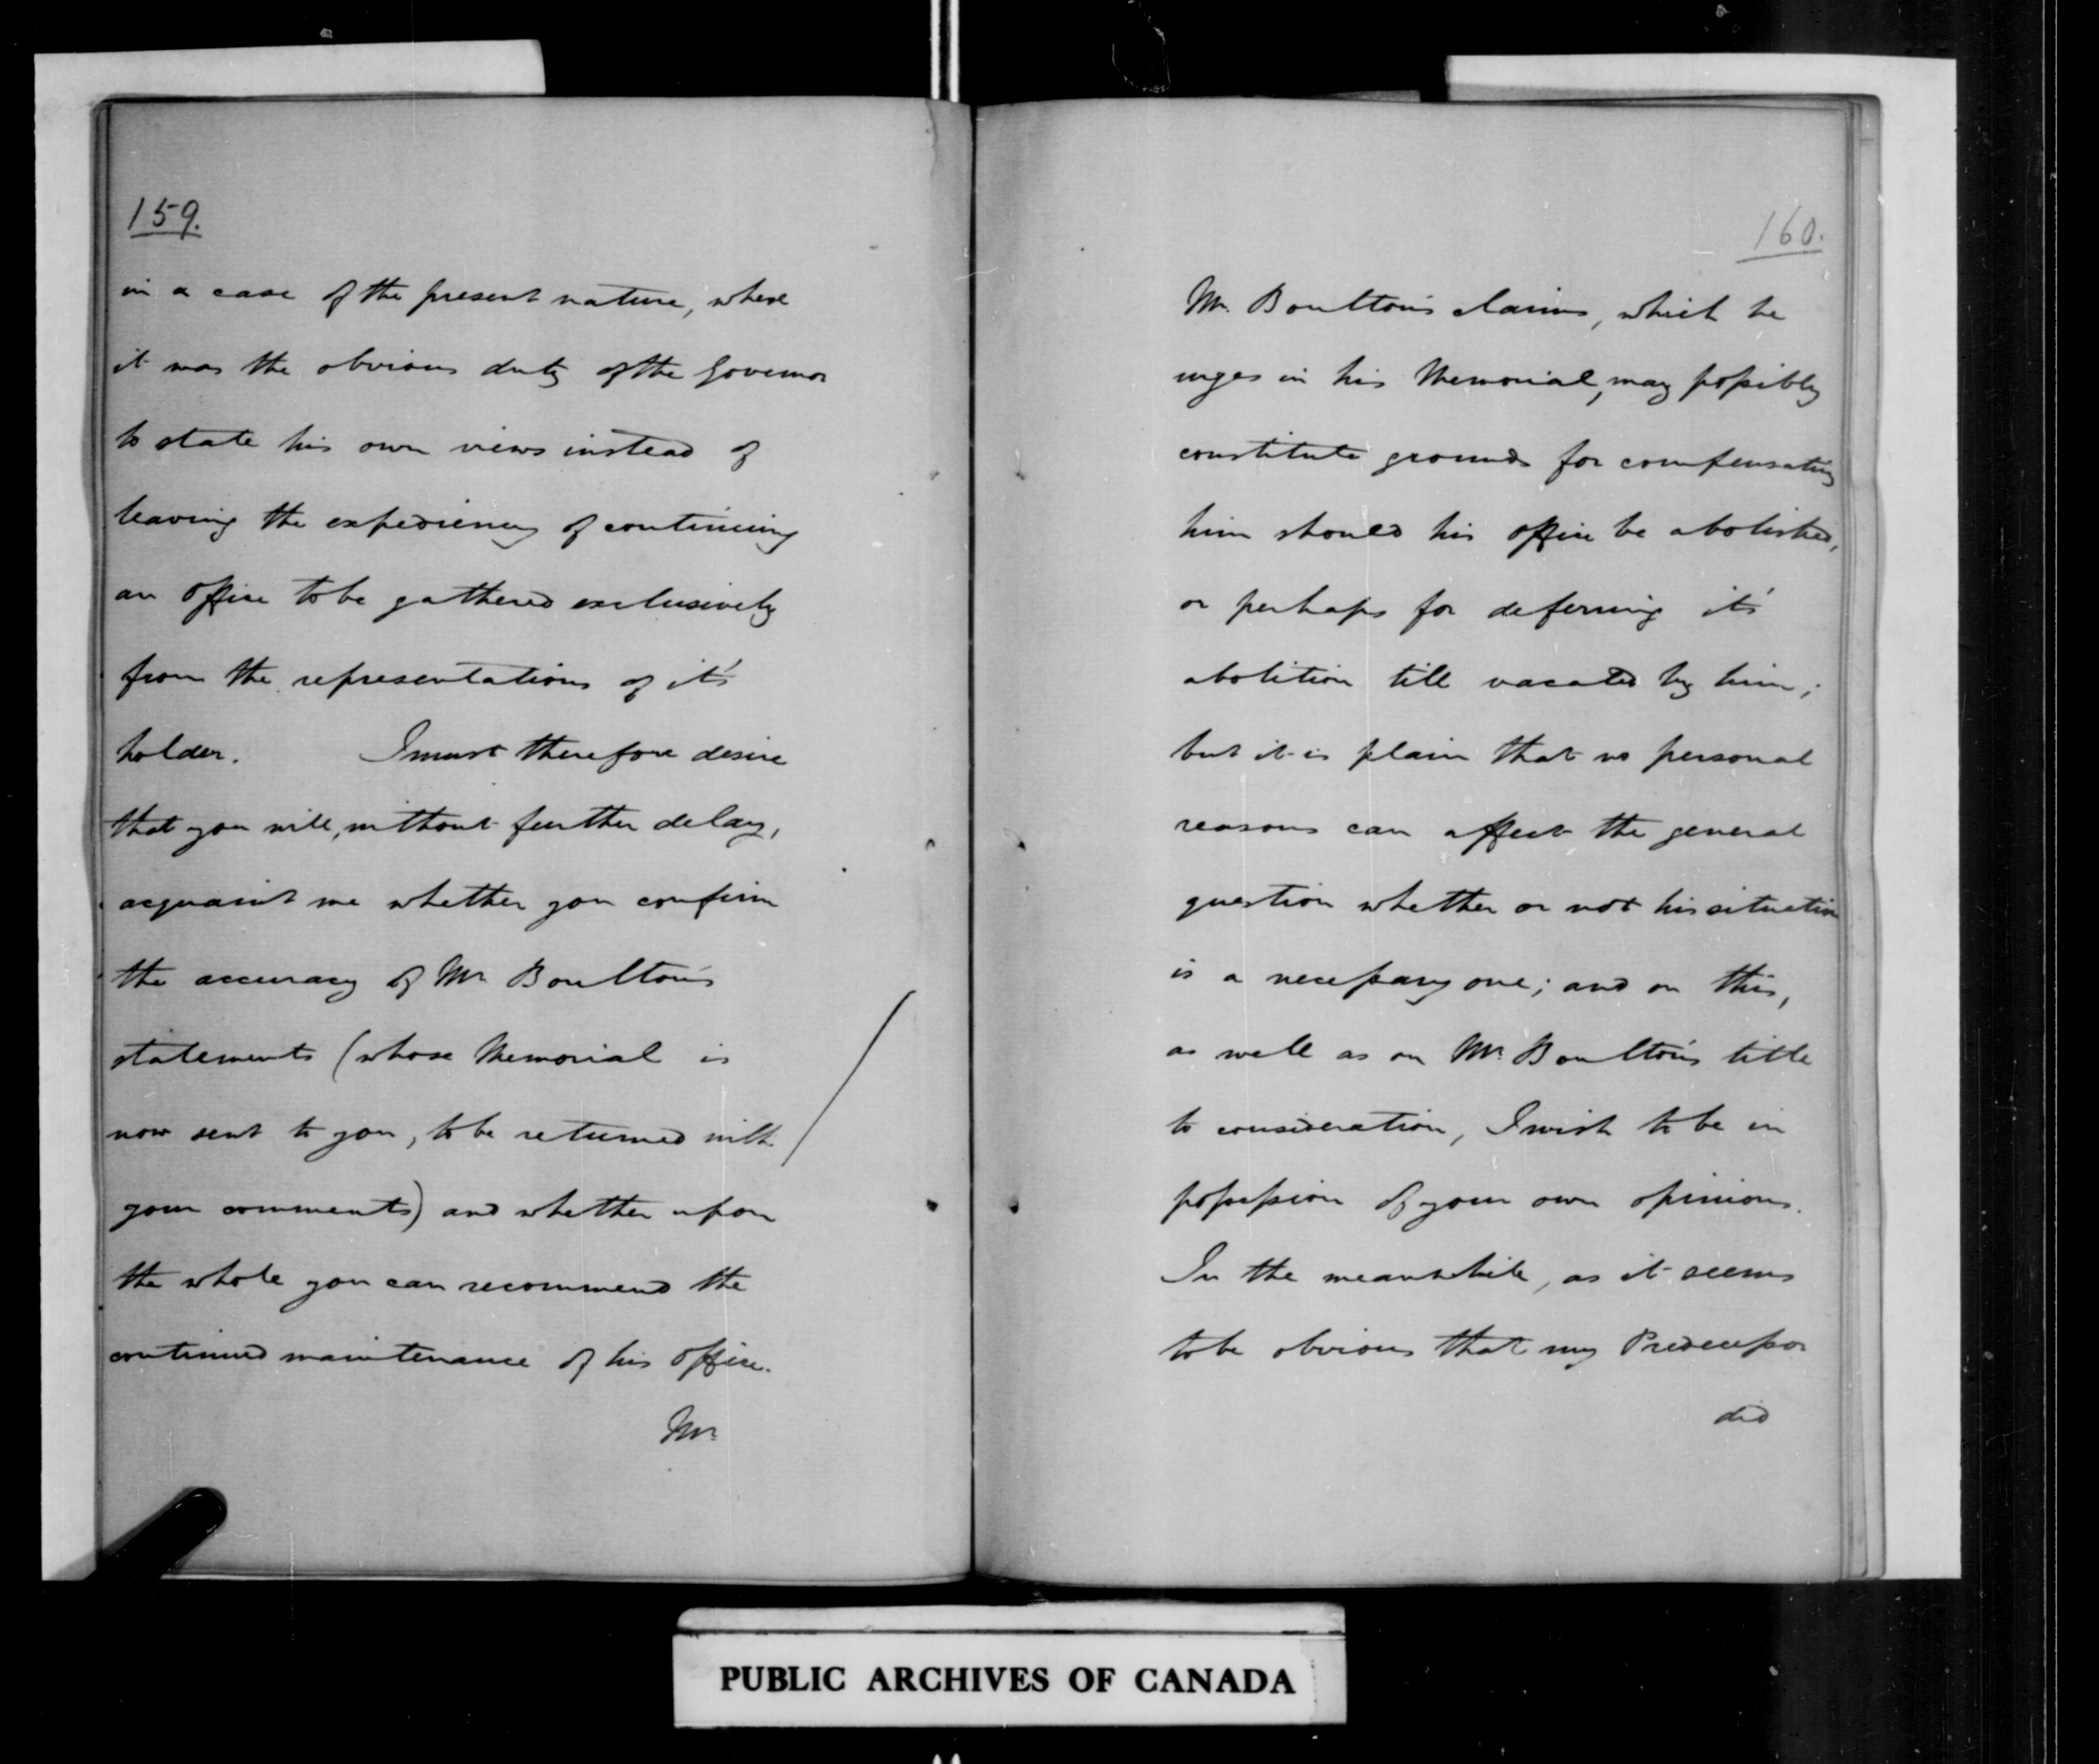 159.
in a case of the present nature, where
it was the obvious duty of the Governor
to state his own views instead of
leaving the expediency of continuing
an office to be gathered exclusively
from the representations of it's
holder. I must therefore desire
that you will, without further delay,
acquaint me whether you confirm
the accuracy of Mr. Boulton's
statements (whose Memorial is
now sent to you, to be returned with
your comments) and whether upon
the whole you can recommend the
continued maintenance of his office.
Mr.
160.
Mr. Boulton's claims, which he
urges in his Memorial, may possibly
constitute grounds for compensating
him should his office be abolished,
or perhaps for deferring it's
abolition till vacated by him;
but it is plain that no personal
reasons can affect the general
question whether or not his situation
is a necessary one; and on this,
as well as on Mr. Boulton's title
to consideration, I wish to be in
possession of your own opinions.
In the meanwhile, as it seems
to be obvious that my Predecessor
did
PUBLIC ARCHIVES OF CANADA